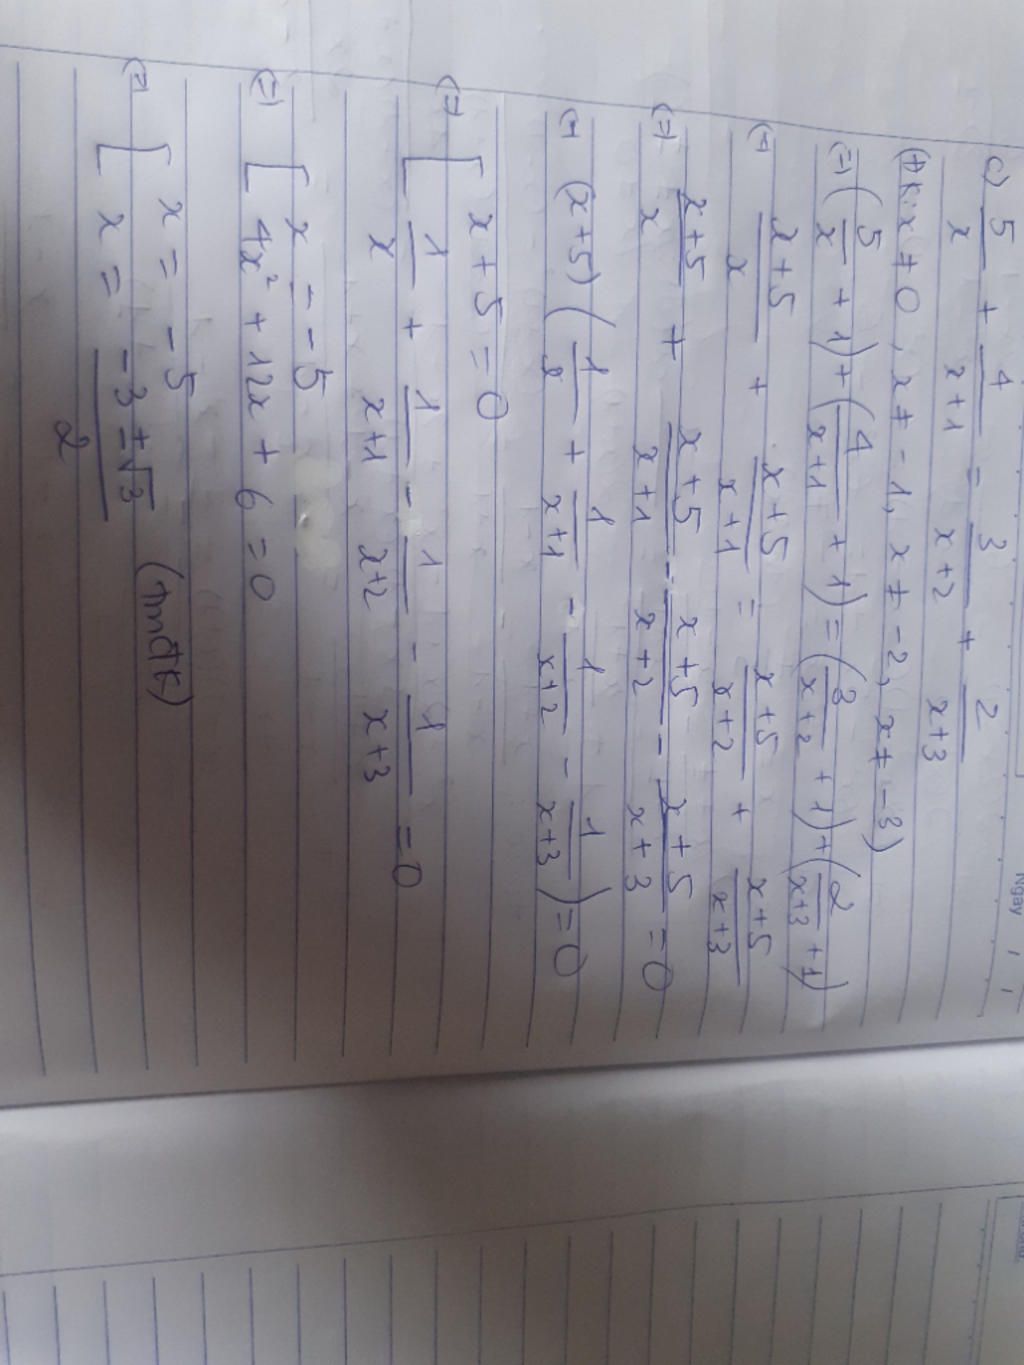 Ngày / /
c) 5/x + 4/(x+1) = 3/(x+2) + 2/(x+3)
(ĐK: x ≠ 0, x ≠ -1, x ≠ -2, x ≠ -3)
(=) (5/x + 1) + (4/(x+1) + 1) = (3/(x+2) + 1) + (2/(x+3) + 1)
(=) (x+5)/x + (x+5)/(x+1) = (x+5)/(x+2) + (x+5)/(x+3)
(=) (x+5)/x + (x+5)/(x+1) - (x+5)/(x+2) - (x+5)/(x+3) = 0
(=) (x+5) (1/x + 1/(x+1) - 1/(x+2) - 1/(x+3)) = 0
(=) [ x + 5 = 0
1/x + 1/(x+1) - 1/(x+2) - 1/(x+3) = 0
(=) [ x = -5
4x² + 12x + 6 = 0
(=) [ x = -5
x = (-3 ± √3)/2 (tmđk)